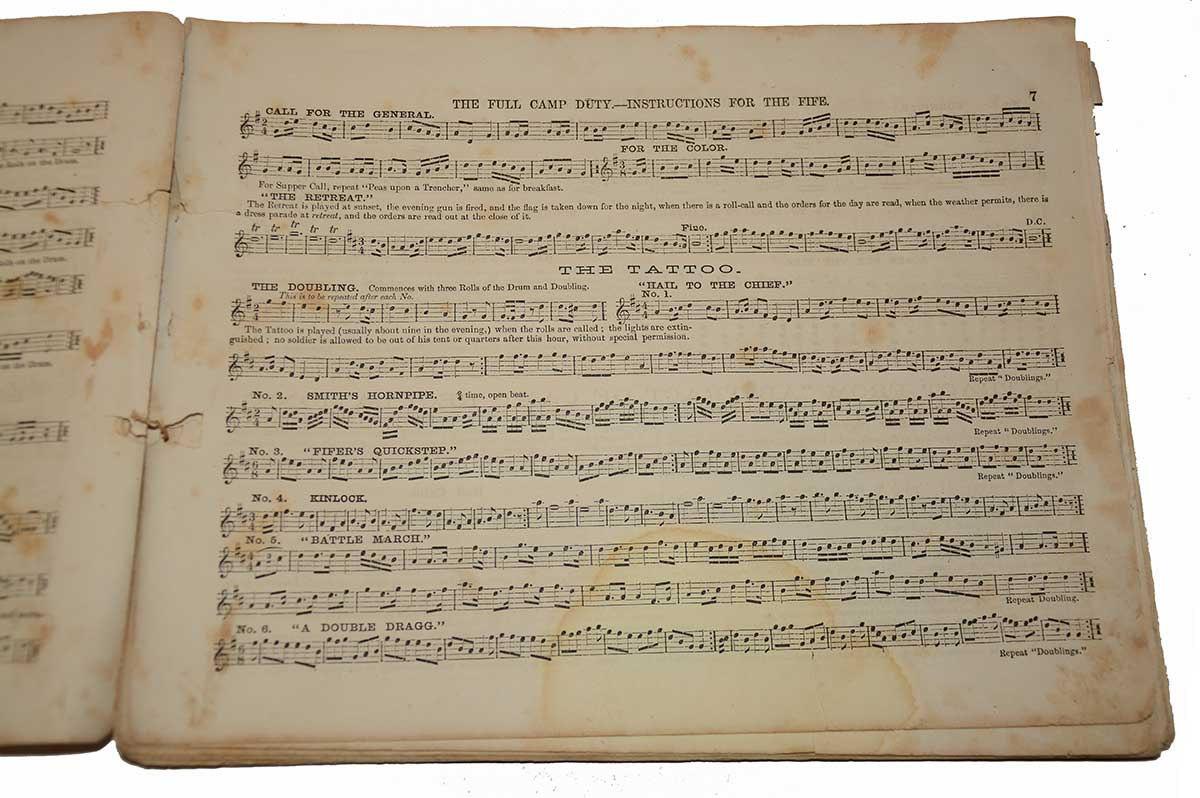 on the Drum.
THE FULL CAMP DUTY.—INSTRUCTIONS FOR THE FIFE.
7
CALL FOR THE GENERAL.
FOR THE COLOR.
For Supper Call, repeat "Peas upon a Trencher," same as for breakfast.
"THE RETREAT."
The Retreat is played at sunset, the evening gun is fired, and the flag is taken down for the night, when there is a roll-call and the orders for the day are read, when the weather permits, there is
a dress parade at retreat, and the orders are read out at the close of it.
tr tr tr tr tr
Fine.
D.C.
THE TATTOO.
THE DOUBLING. Commences with three Rolls of the Drum and Doubling.
This is to be repeated after each No.
"HAIL TO THE CHIEF."
No. 1.
The Tattoo is played (usually about nine in the evening,) when the rolls are called; the lights are extin-
guished; no soldier is allowed to be out of his tent or quarters after this hour, without special permission.
Repeat "Doublings."
No. 2. SMITH'S HORNPIPE. time, open beat.
Repeat "Doublings."
No. 3. "FIFER'S QUICKSTEP."
Repeat "Doublings."
No. 4. KINLOCK.
No. 5. "BATTLE MARCH."
Repeat Doubling.
No. 6. "A DOUBLE DRAGG."
Repeat "Doublings."